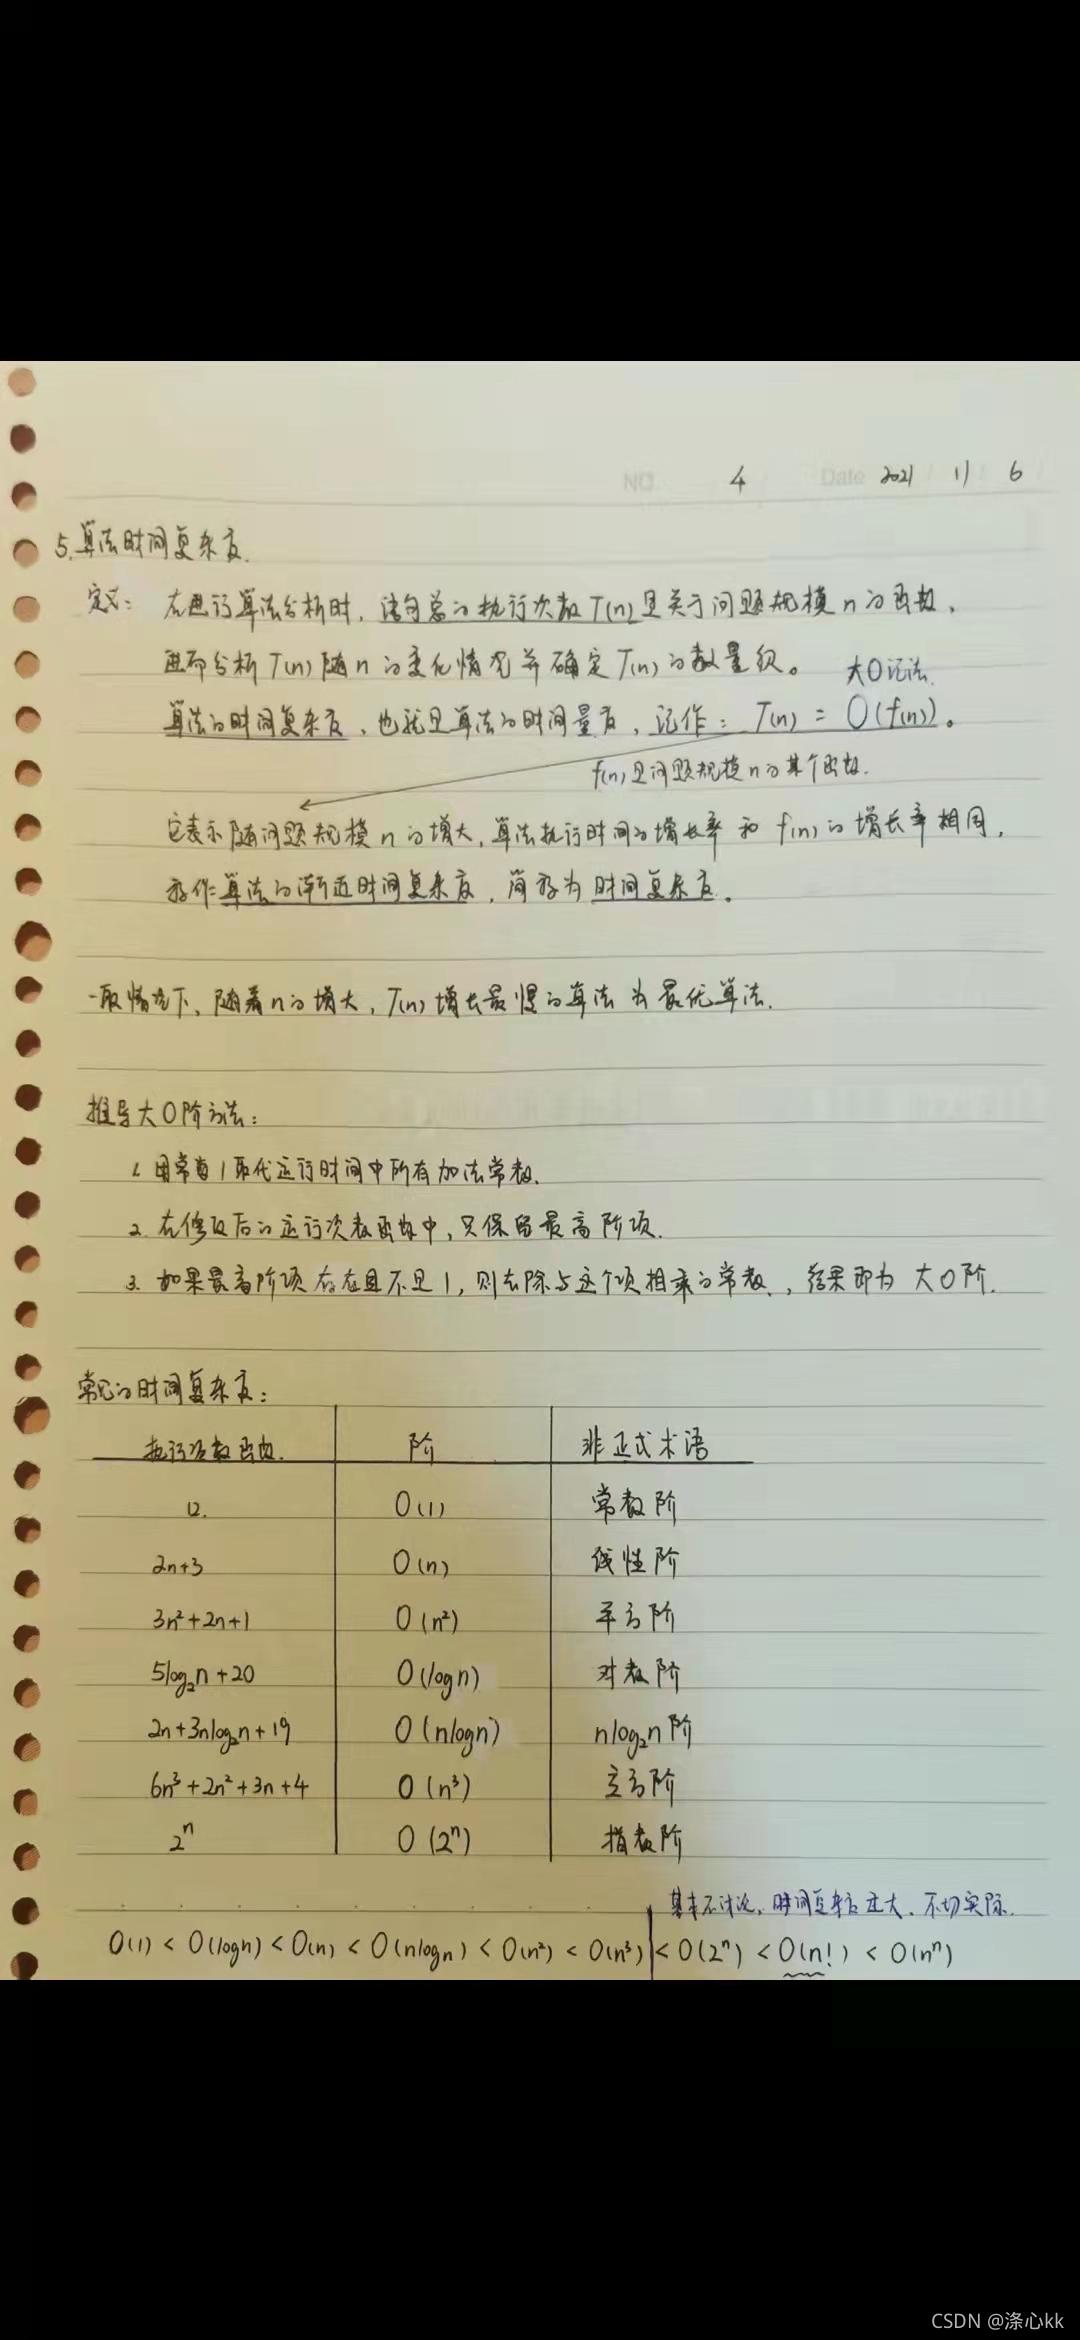 NO. 4 Date 2021 11 6
5.算法时间复杂度.
定义：在进行算法分析时，语句总的执行次数T(n)是关于问题规模n的函数，
进而分析T(n)随n的变化情况并确定T(n)的数量级。
大O记法.
算法的时间复杂度，也就是算法的时间量度，记作：T(n) = O(f(n))。
f(n)是问题规模n的某个函数.
它表示随问题规模n的增大，算法执行时间的增长率和f(n)的增长率相同，
称作算法的渐近时间复杂度，简称为时间复杂度。
一般情况下，随着n的增大，T(n)增长最慢的算法为最优算法.
推导大O阶方法：
1. 用常数1取代运行时间中所有加法常数.
2. 在修改后的运行次数函数中，只保留最高阶项.
3. 如果最高阶项存在且不是1，则去除与这个项相乘的常数，结果即为大O阶.
常见的时间复杂度：
执行次数函数. 阶 非正式术语
12. O(1) 常数阶
2n+3 O(n) 线性阶
3n²+2n+1 O(n²) 平方阶
5log₂n+20 O(logn) 对数阶
2n+3nlog₂n+19 O(nlogn) nlog₂n阶
6n³+2n²+3n+4 O(n³) 立方阶
2ⁿ O(2ⁿ) 指数阶
基本不讨论，时间复杂度过大，不切实际.
O(1) < O(logn) < O(n) < O(nlogn) < O(n²) < O(n³) < O(2ⁿ) < O(n!) < O(nⁿ)
CSDN @涤心kk